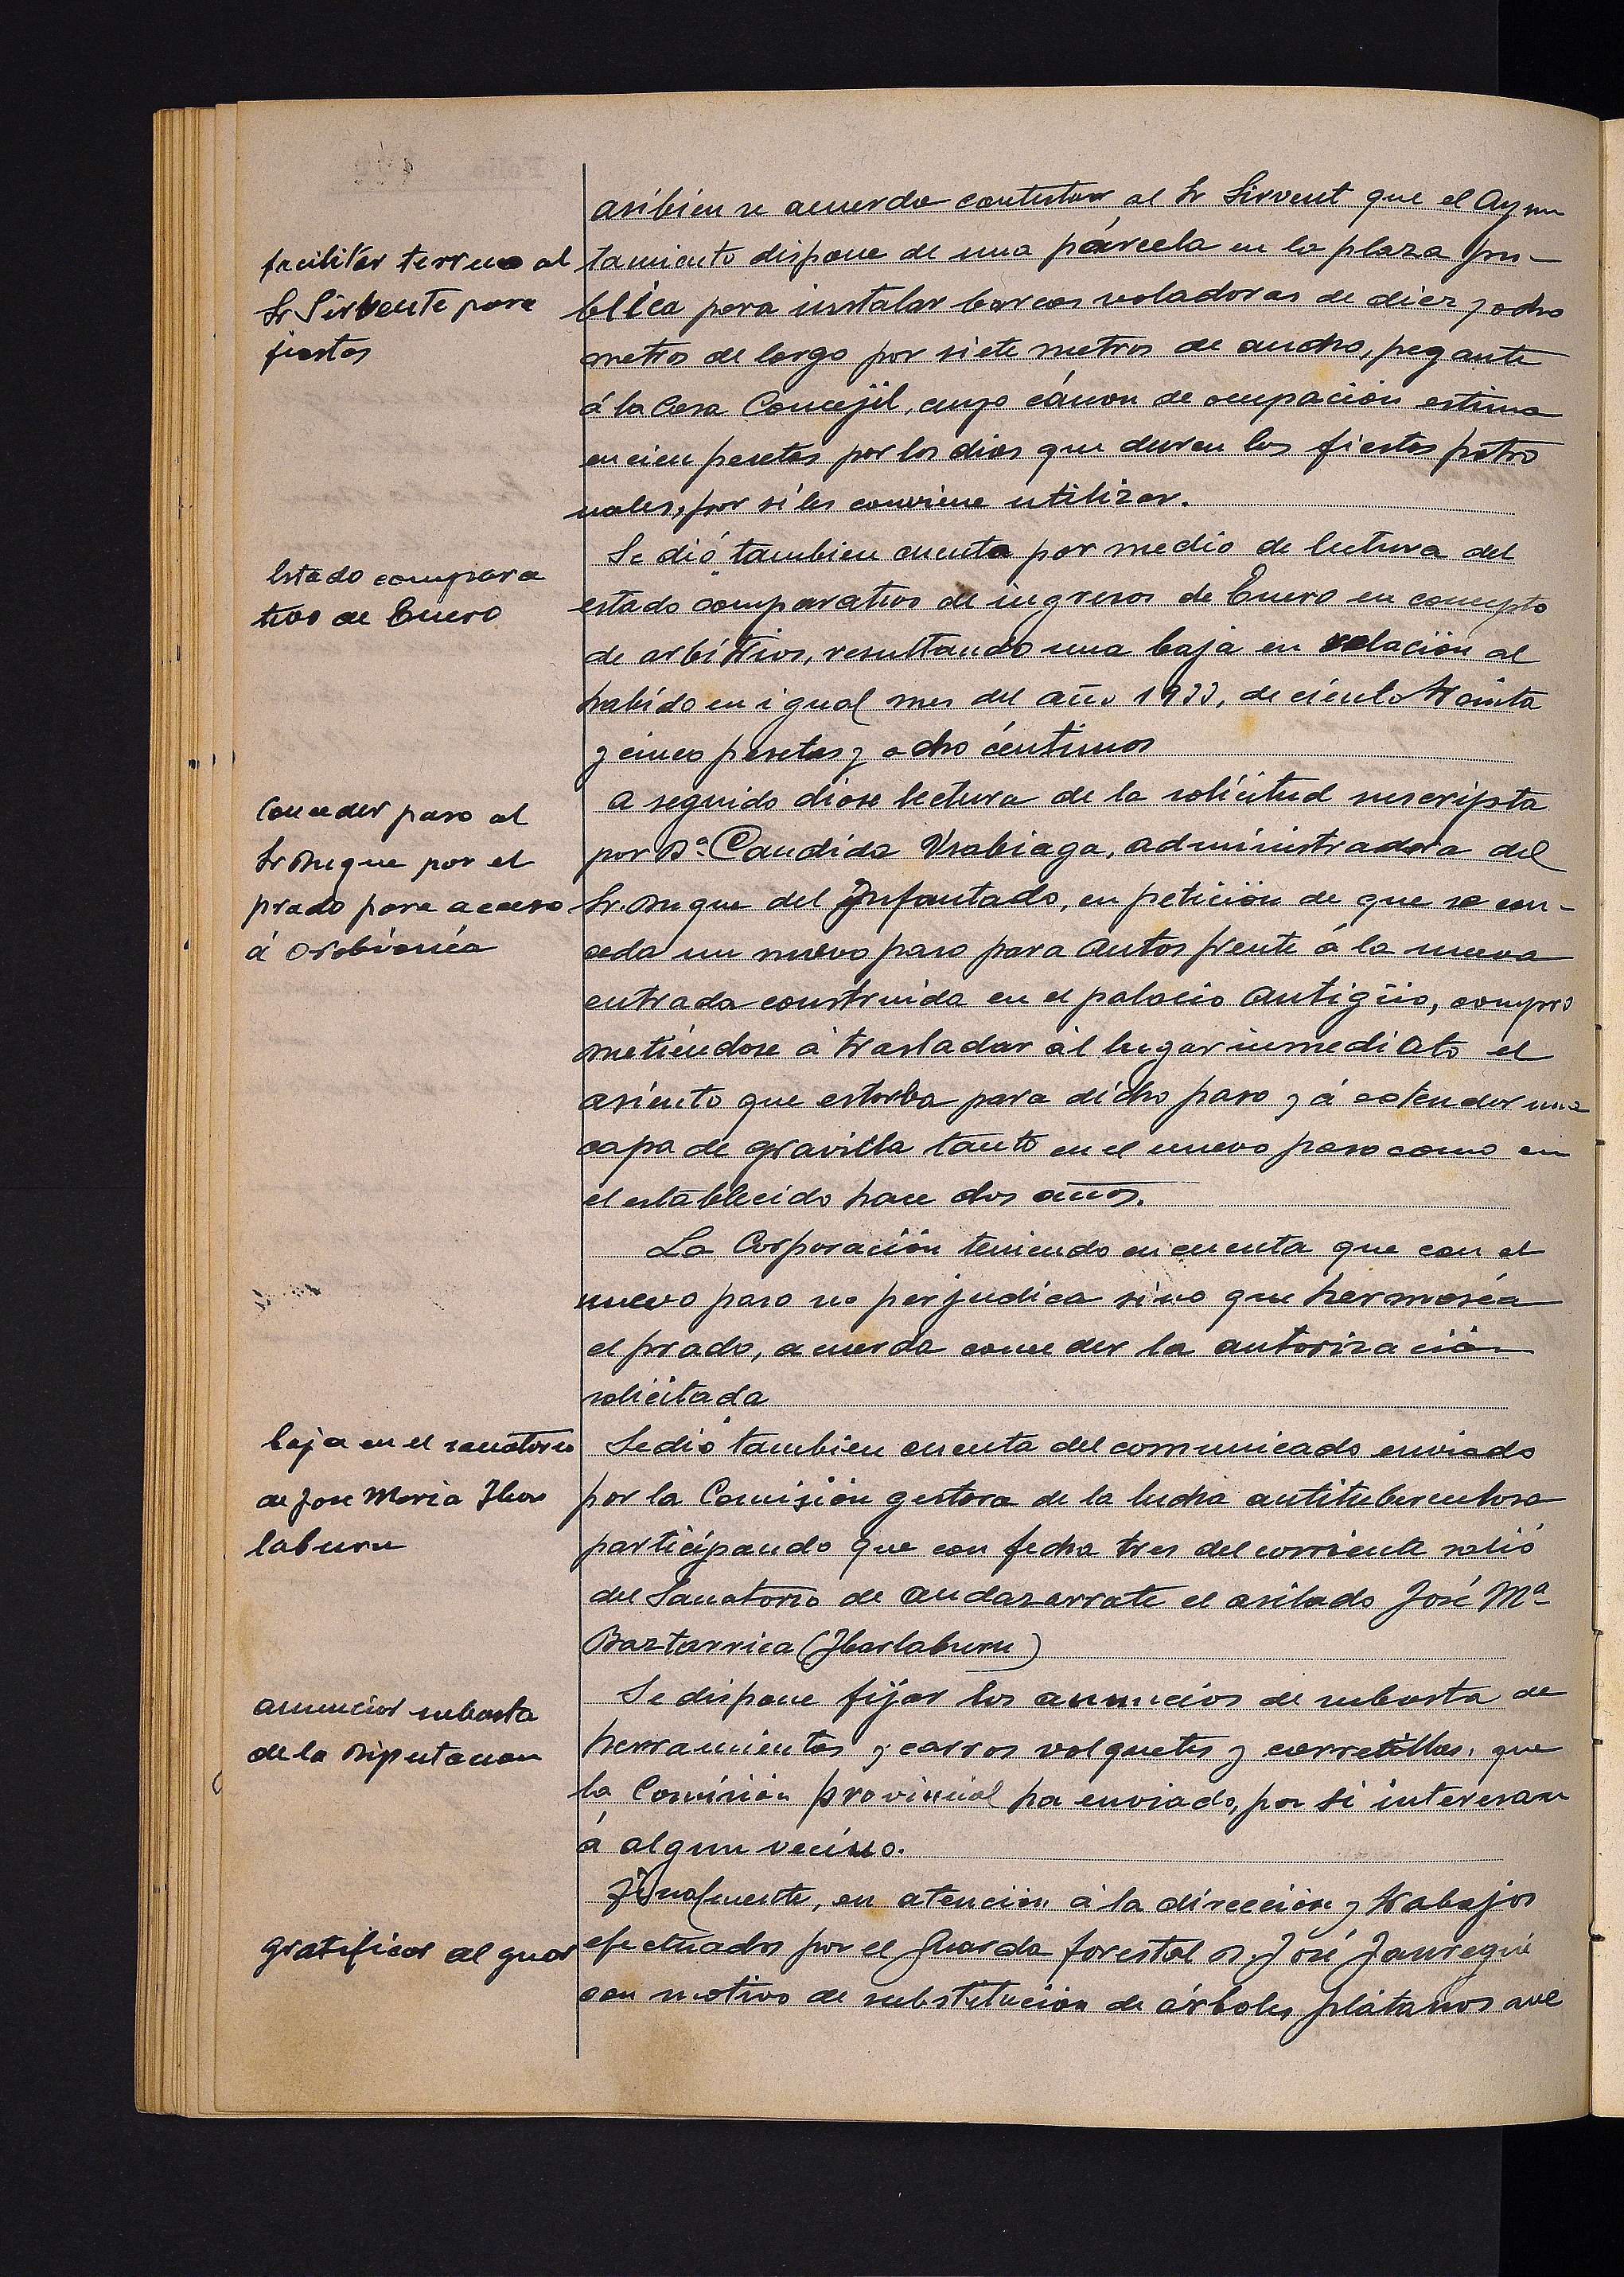 asibien se acuerda contestar al Sr Sirvent que el Ayun
facilitar terreno al
Sr Sirbente para
fiestas
tamiento dispone de una párcela en la plaza pu-
blica para instalar barcas voladoras de diez y ocho
metros de largo por siete metros de ancho, pegante
á la Casa Concejil, cuyo cánon de ocupación estima
en cien pesetas por los dias que duren las fiestas patro
nales, por si les conviene utilizar.
Estado compara
tivo de Enero
Se dió tambien cuenta por medio de lectura del
estado comparativo de ingresos de Enero en concepto
de arbitrios, resultando una baja en relación al
habido en igual mes del año 1933, de ciento treinta
y cinco pesetas y ocho céntimos
Conceder paso al
Sr Duque por el
prado para acceso
á Orobiónéa
A seguido diose lectura de la solicitud suscripta
por Dª Candida Usabiaga, administradora del
Sr. Duque del Infantado, en petición de que se con-
ceda un nuevo paso para autos frente á la nueva
entrada construida en el palacio Antigüo, compro
metiéndose á trasladar al lugar inmediato el
asiento que estorba para dicho paso y á extender una
capa de gravilla tanto en el nuevo paso como en
el establecido hace dos años.
La Corporación teniendo en cuenta que con el
nuevo paso no perjudica sino que hermoséa
el prado, acuerda conceder la autorización
solicitada
baja en el sanatorio
de Jose Maria Ibar
laburu
Se dió tambien cuenta del comunicado enviado
por la Comisión gestora de la lucha antituberculosa
participando que con fecha tres del corriente salió
del Sanatorio de Andazarrate el asilado José Mª
Baztarrica (Ibarlaburu)
anuncios subasta
de la Diputacion
Se dispone fijar los anuncios de subasta de
herramientas y carros volquetes y carretillas, que
la Comisión provincial ha enviado, por si interesan
á algun vecino.
Finalmente, en atención á la dirección y trabajos
gratificar al guar
efectuados por el Guarda forestal D. José Jauregui
con motivo de substitución de árboles plátanos que